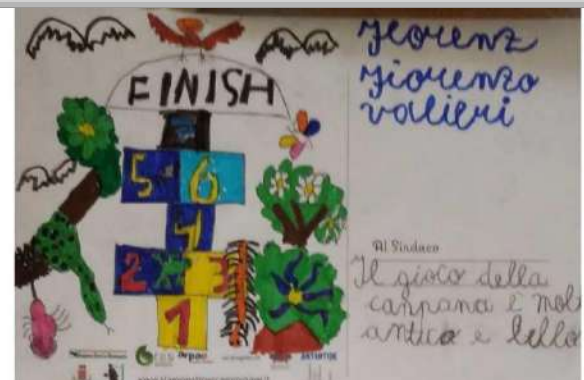 FINISH
5 6
4
2 3
1
arpav
Fiorenz
Fiorenzo
valieri
Al Sindaco
Il gioco della
canpana è mol
antico e bello